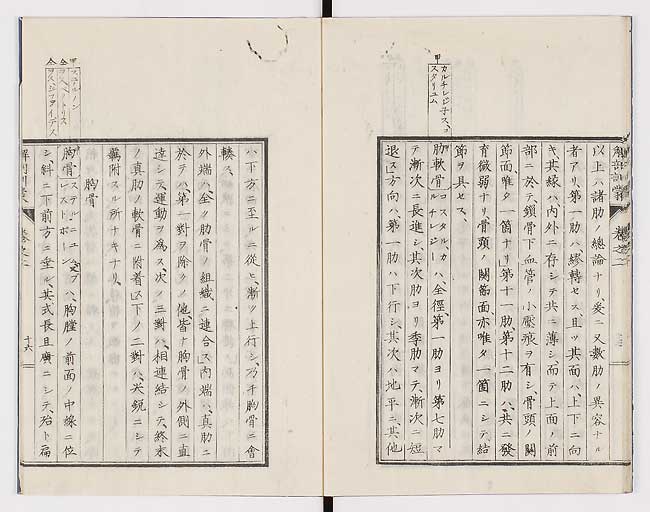 甲カルチレジ子スコ
スタリュム
以上ハ諸肋ノ總論ナリ、爰ニ又數肋ノ異容ナル
者アリ、第一肋ハ繆轉セス、且ツ其面ハ、上下ニ向
キ其縁ハ、内外ニ存シテ共ニ薄シ、而テ上面ノ前
部ニ於テ、鎖骨下血管ノ小壓痕ヲ有シ、骨頭ノ關
節面、唯タ一箇ナリ、第十一肋、第十二肋ハ、共ニ發
育微弱ナリ骨頭ノ關節面、亦唯タ一箇ニシテ、結
節ヲ具セス、
肋軟骨コスタルカルチレジーハ、全徑、第一肋ヨリ第七肋マ
テ、漸次ニ長進シ、其次肋ヨリ季肋マテ、漸次ニ短
退ス、方向ハ、第一肋ハ下行シ、其次ハ地平ニ、其他
解剖訓蒙 卷之二
ハ下方ニ至ルニ從ヒ、漸ク上行シ、乃チ胸骨ニ會
輳ス、
外端ハ、全ク肋骨ノ組織ニ連合ス、内端ハ、真肋ニ
於テハ、第一對ヲ除クノ他、皆ナ胸骨ノ外側ニ直
達シテ、運動ヲ為ス、次ノ三對ハ、相連結シテ、終末
ノ真肋ノ軟骨ニ附着ス、下ノ二對ハ、尖鋭ニシテ
羈附スル所ナキナリ、
胸骨
胸骨ステルニユム又ブレストボーンハ、胸膛ノ前面ノ中線ニ位
シ、斜ニ下前方ニ垂ル、其式長且廣ニシテ、殆ト扁
卷之二 十六